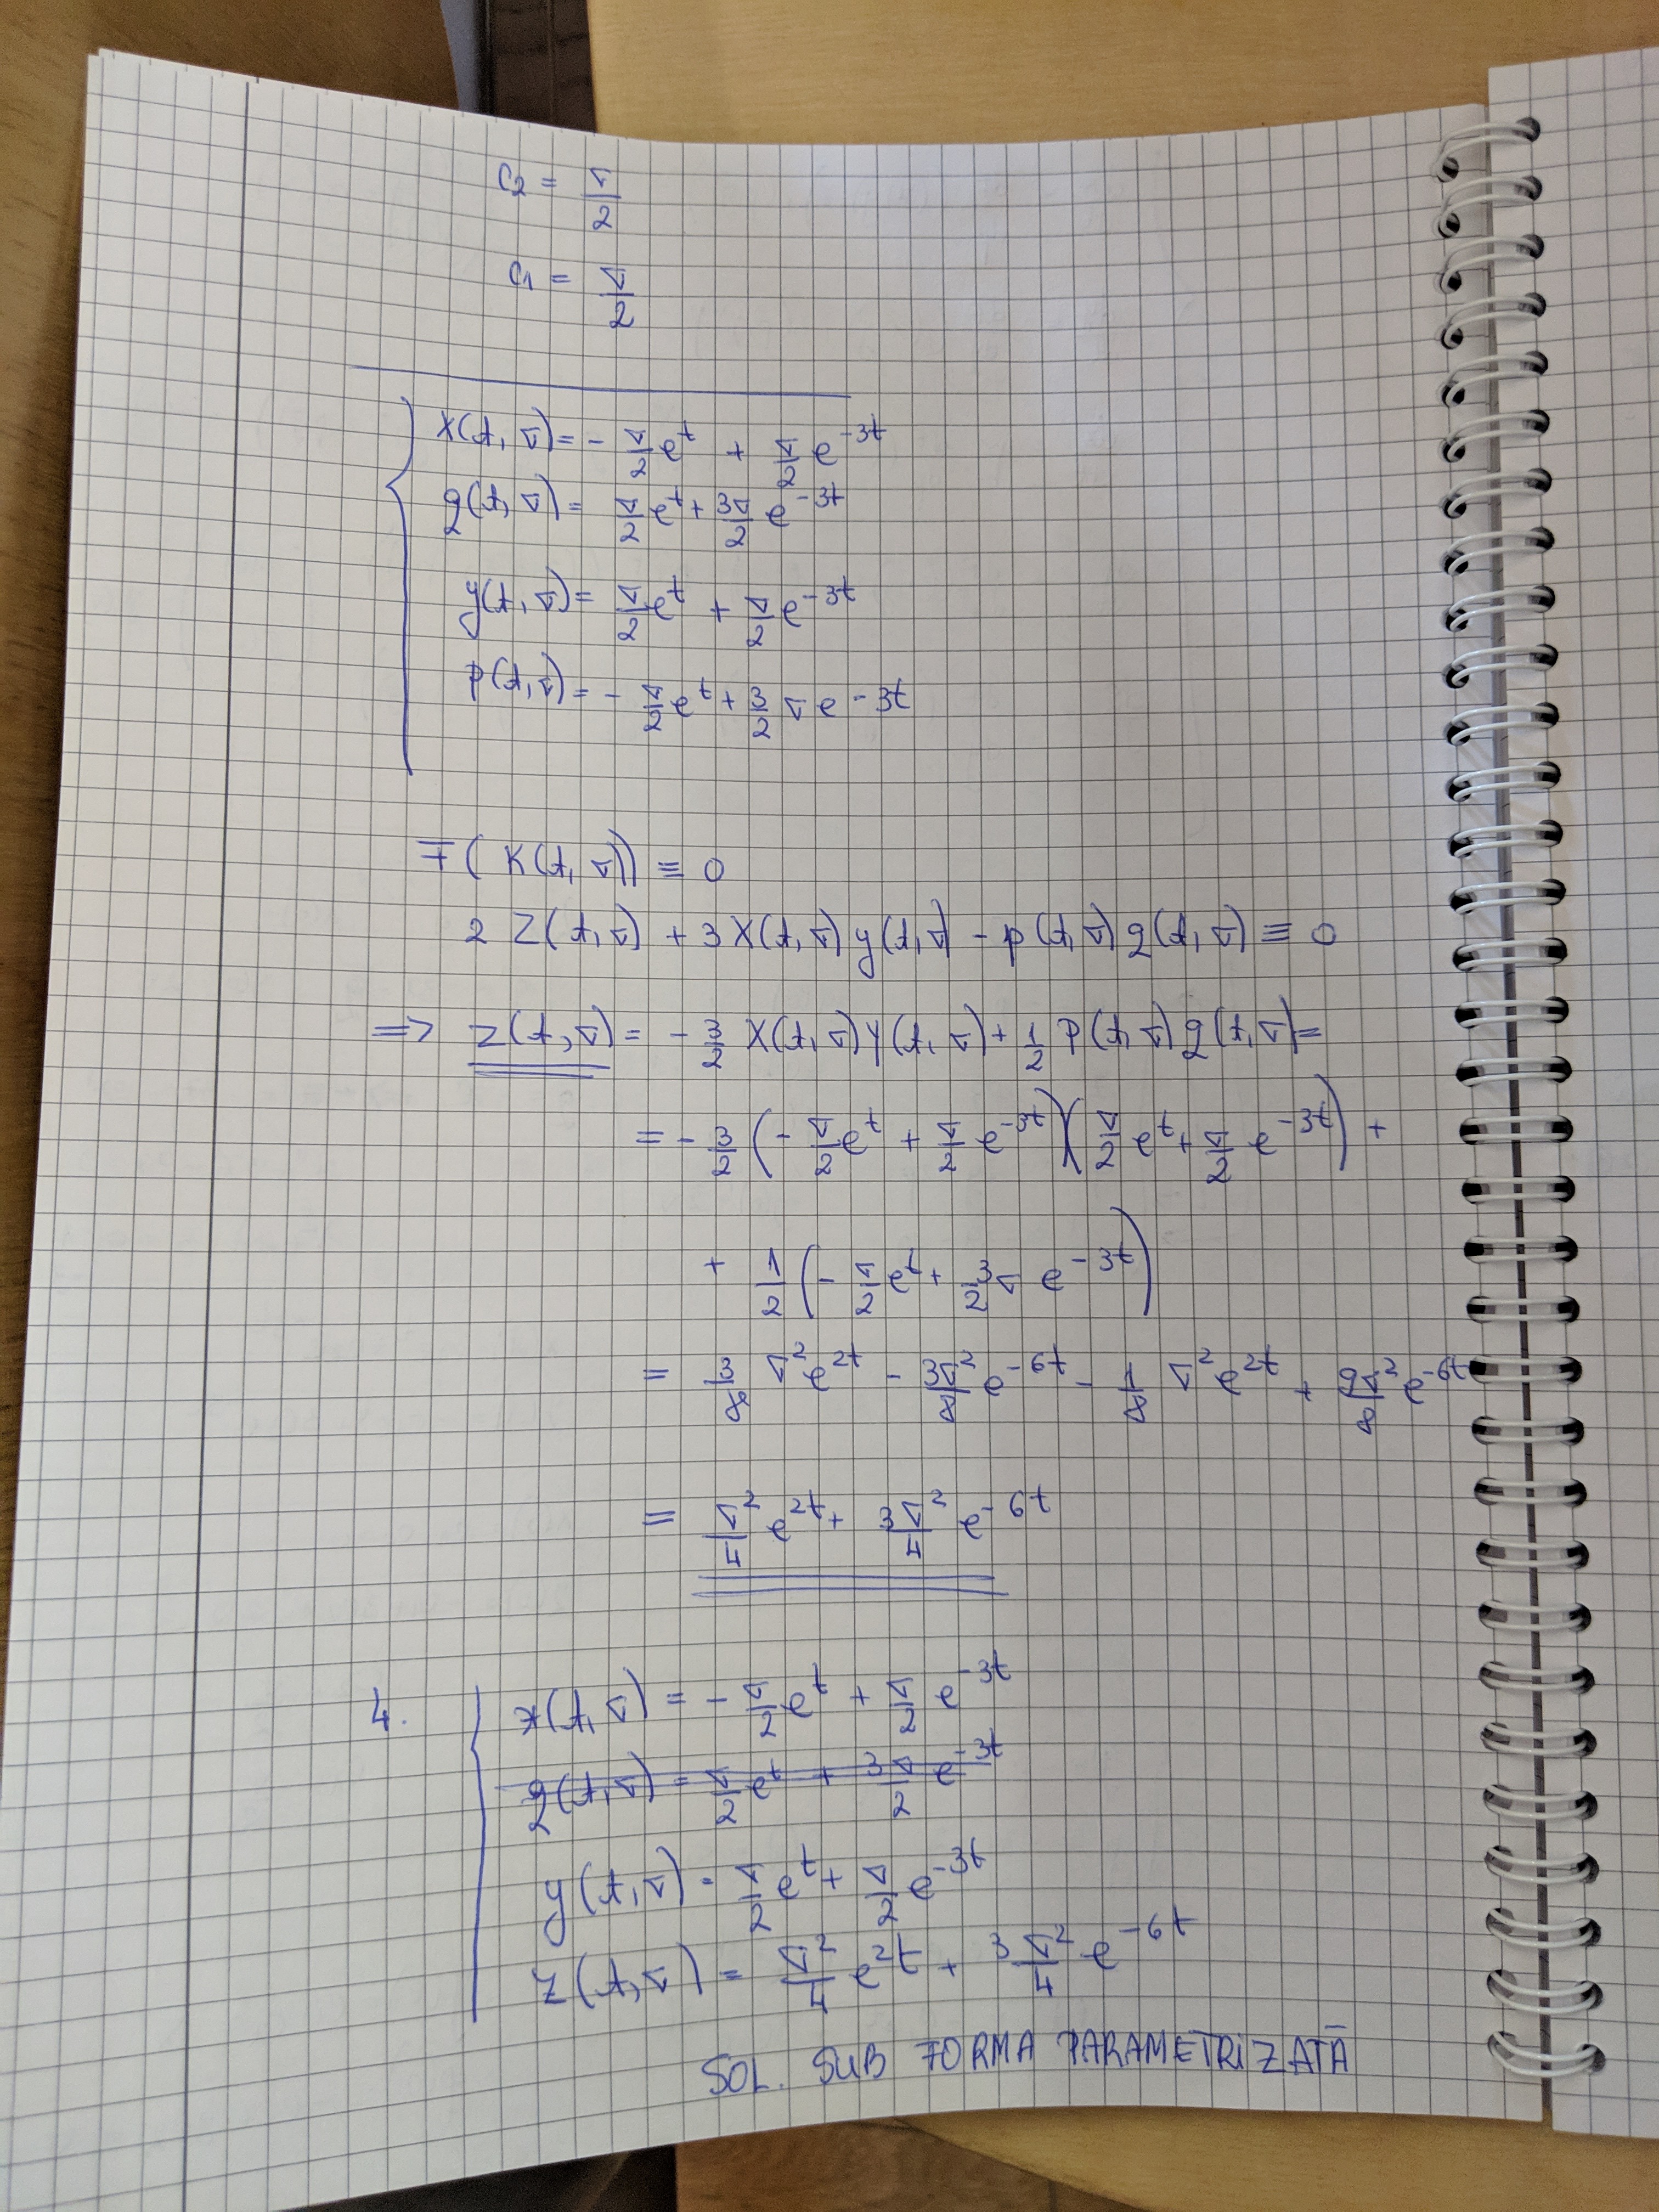 C₂ = σ/2
C₁ = σ/2
x(t, σ) = - σ/2 e^t + σ/2 e^{-3t}
q(t, σ) = σ/2 e^t + 3σ/2 e^{-3t}
y(t, σ) = σ/2 e^t + σ/2 e^{-3t}
p(t, σ) = - σ/2 e^t + 3/2 σ e^{-3t}
F( K(t, σ)) ≡ 0
2 z(t, σ) + 3 x(t, σ) y(t, σ) - p(t, σ) q(t, σ) ≡ 0
=> z(t, σ) = - 3/2 x(t, σ) y(t, σ) + 1/2 p(t, σ) q(t, σ) =
= - 3/2 ( - σ/2 e^t + σ/2 e^{-3t} ) ( σ/2 e^t + σ/2 e^{-3t} ) +
+ 1/2 ( - σ/2 e^t + 3/2 σ e^{-3t} )
= 3/8 σ² e^{2t} - 3σ²/8 e^{-6t} - 1/8 σ² e^{2t} + 9σ²/8 e^{-6t}
= σ²/4 e^{2t} + 3σ²/4 e^{-6t}
4. x(t, σ) = - σ/2 e^t + σ/2 e^{-3t}
q(t, σ) = σ/2 e^t + 3σ/2 e^{-3t}
y(t, σ) = σ/2 e^t + σ/2 e^{-3t}
z(t, σ) = σ²/4 e^{2t} + 3σ²/4 e^{-6t}
SOL. SUB FORMA PARAMETRIZATĂ